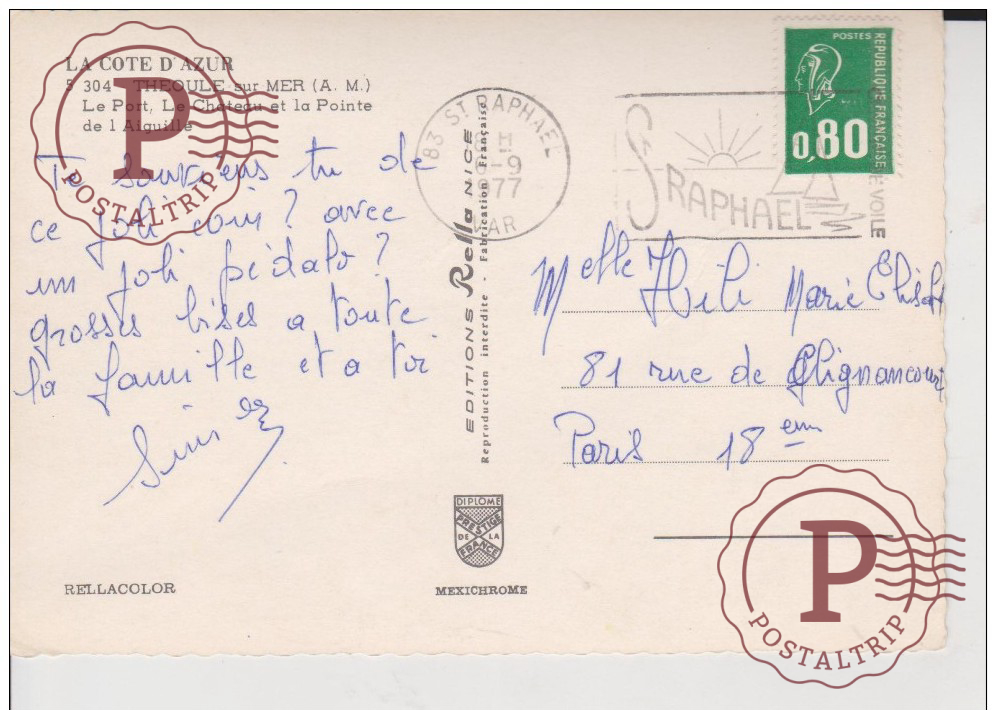 LA COTE D'AZUR
5 304 - THEOULE sur MER (A. M.)
Le Port, Le Château et la Pointe
de l'Aiguille
Te souviens tu de
ce joli coin ? avec
un joli pédalo ?
grosses bises a toute
la famille et a toi
POSTALTRIP
EDITIONS Rella NICE
Reproduction interdite - Fabrication Française
83 ST RAPHAEL
H
-9
1977
VAR
ST RAPHAEL
VOILE
POSTES
REPUBLIQUE FRANÇAISE
0,80
Melle Marie
81 rue de Clignancourt
Paris 18 eme
DIPLOME
PRESTIGE
DE LA
FRANCE
RELLACOLOR
MEXICHROME
P
POSTALTRIP